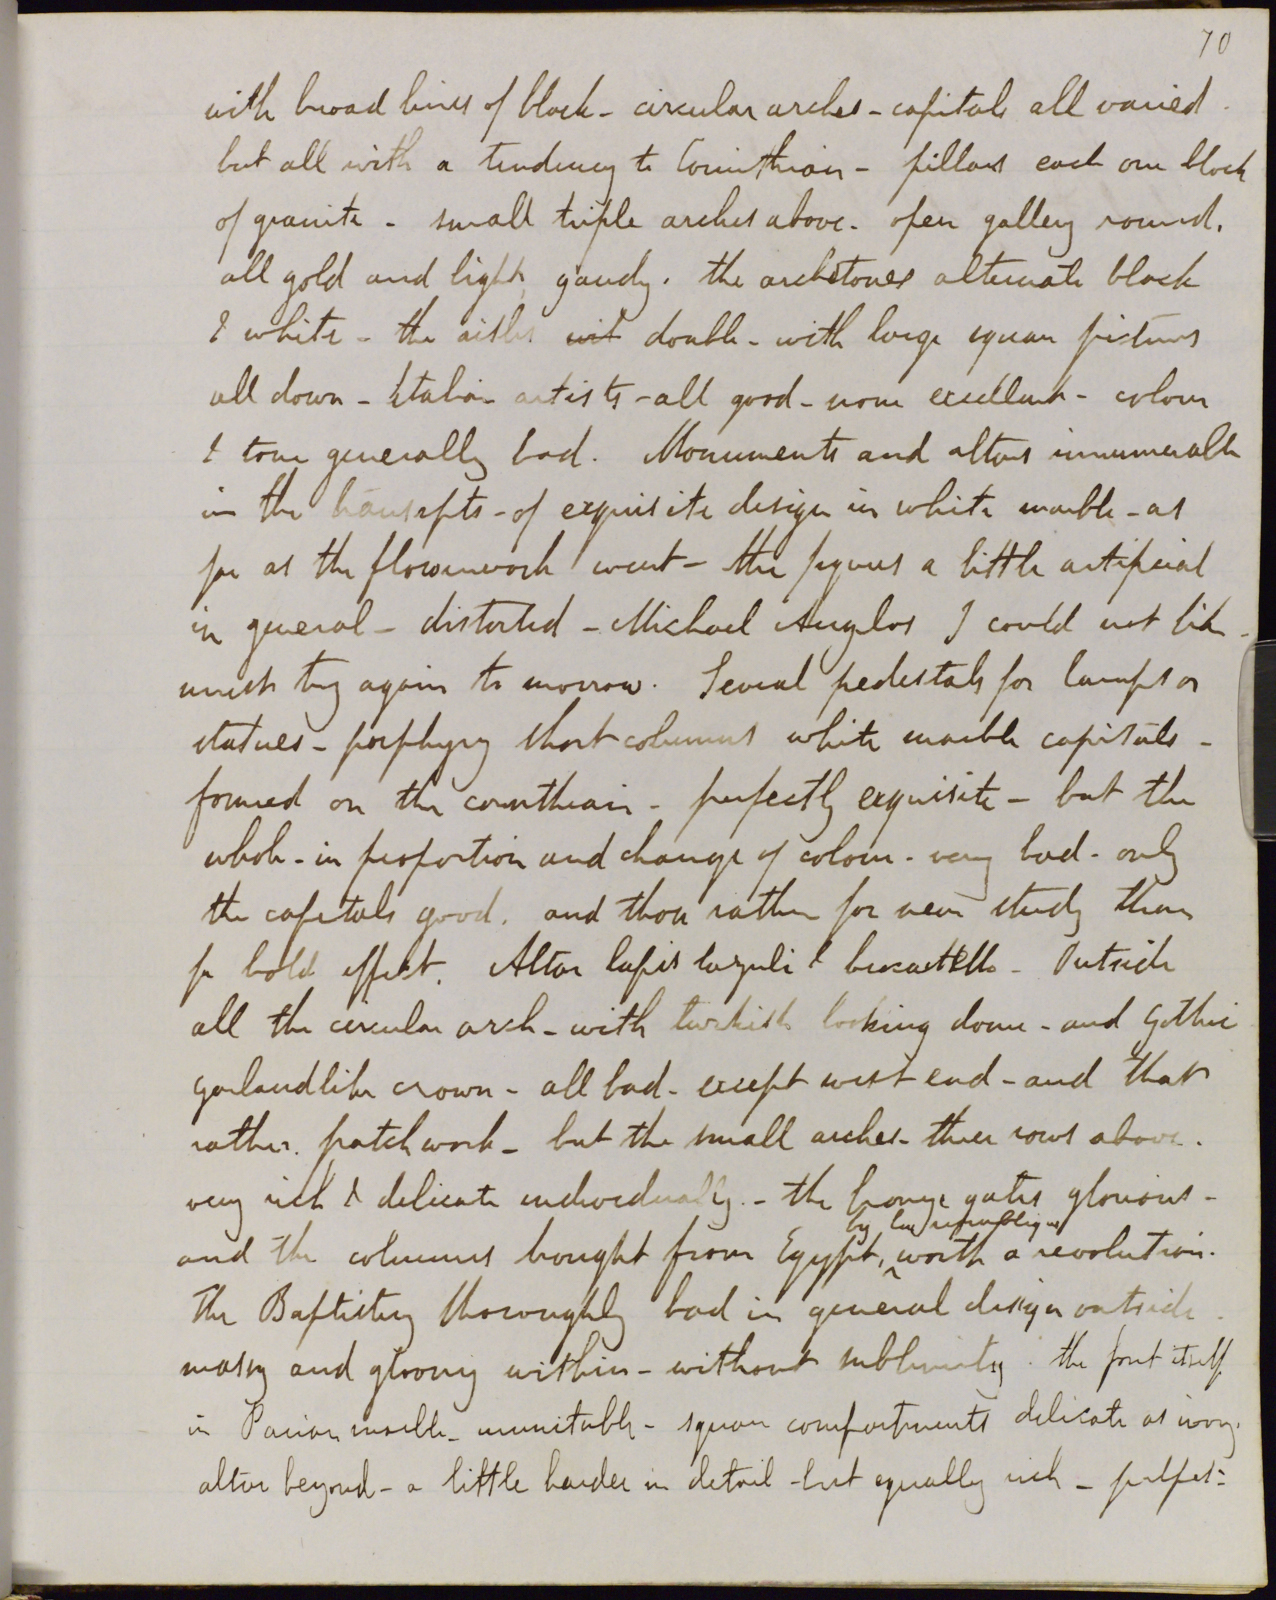 70
with broad lines of black - circular arches - capitals all varied -
but all with a tendency to Corinthian - pillars each one block
of granite - small triple arches above - open gallery round.
all gold and light, gaudy. the archstones alternate black
& white - the aisles wit double - with large square pictures
all down - Italian artists - all good - none excellent - colour
& tone generally bad. Monuments and altars innumerable
in the transepts - of exquisite design in white marble - as
far as the flowerwork went - the figures a little artificial
in general - distorted - Michael Angelos I could not like -
must try again to morrow. Several pedestals for lamps or
statues - porphyry short columns white marble capitals -
formed on the corinthian - perfectly exquisite - but the
whole - in proportion and change of colour - very bad - only
the capitals good. and those rather for near study than
for bold effect. Altar lapis lazuli & brocatello - Outside
all the circular arch - with turkish looking dome - and Gothic
garlandlike crown - all bad - except west end - and that
rather. patchwork - but the small arches - three rows above.
very rich & delicate individually. - the bronze gates glorious -
by
and the columns bought from Egypt, worth a revolution.
The Baptistery thoroughly bad in general design outside.
massy and gloomy within - without sublimity. the font itself
in Parian marble - inimitable - square compartments delicate as ivory.
altar beyond - a little harder in detail - but equally rich - pulpit: